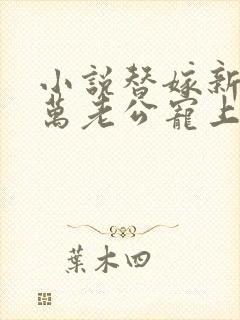 小説替嫁新
萬老公寵上
葉木四